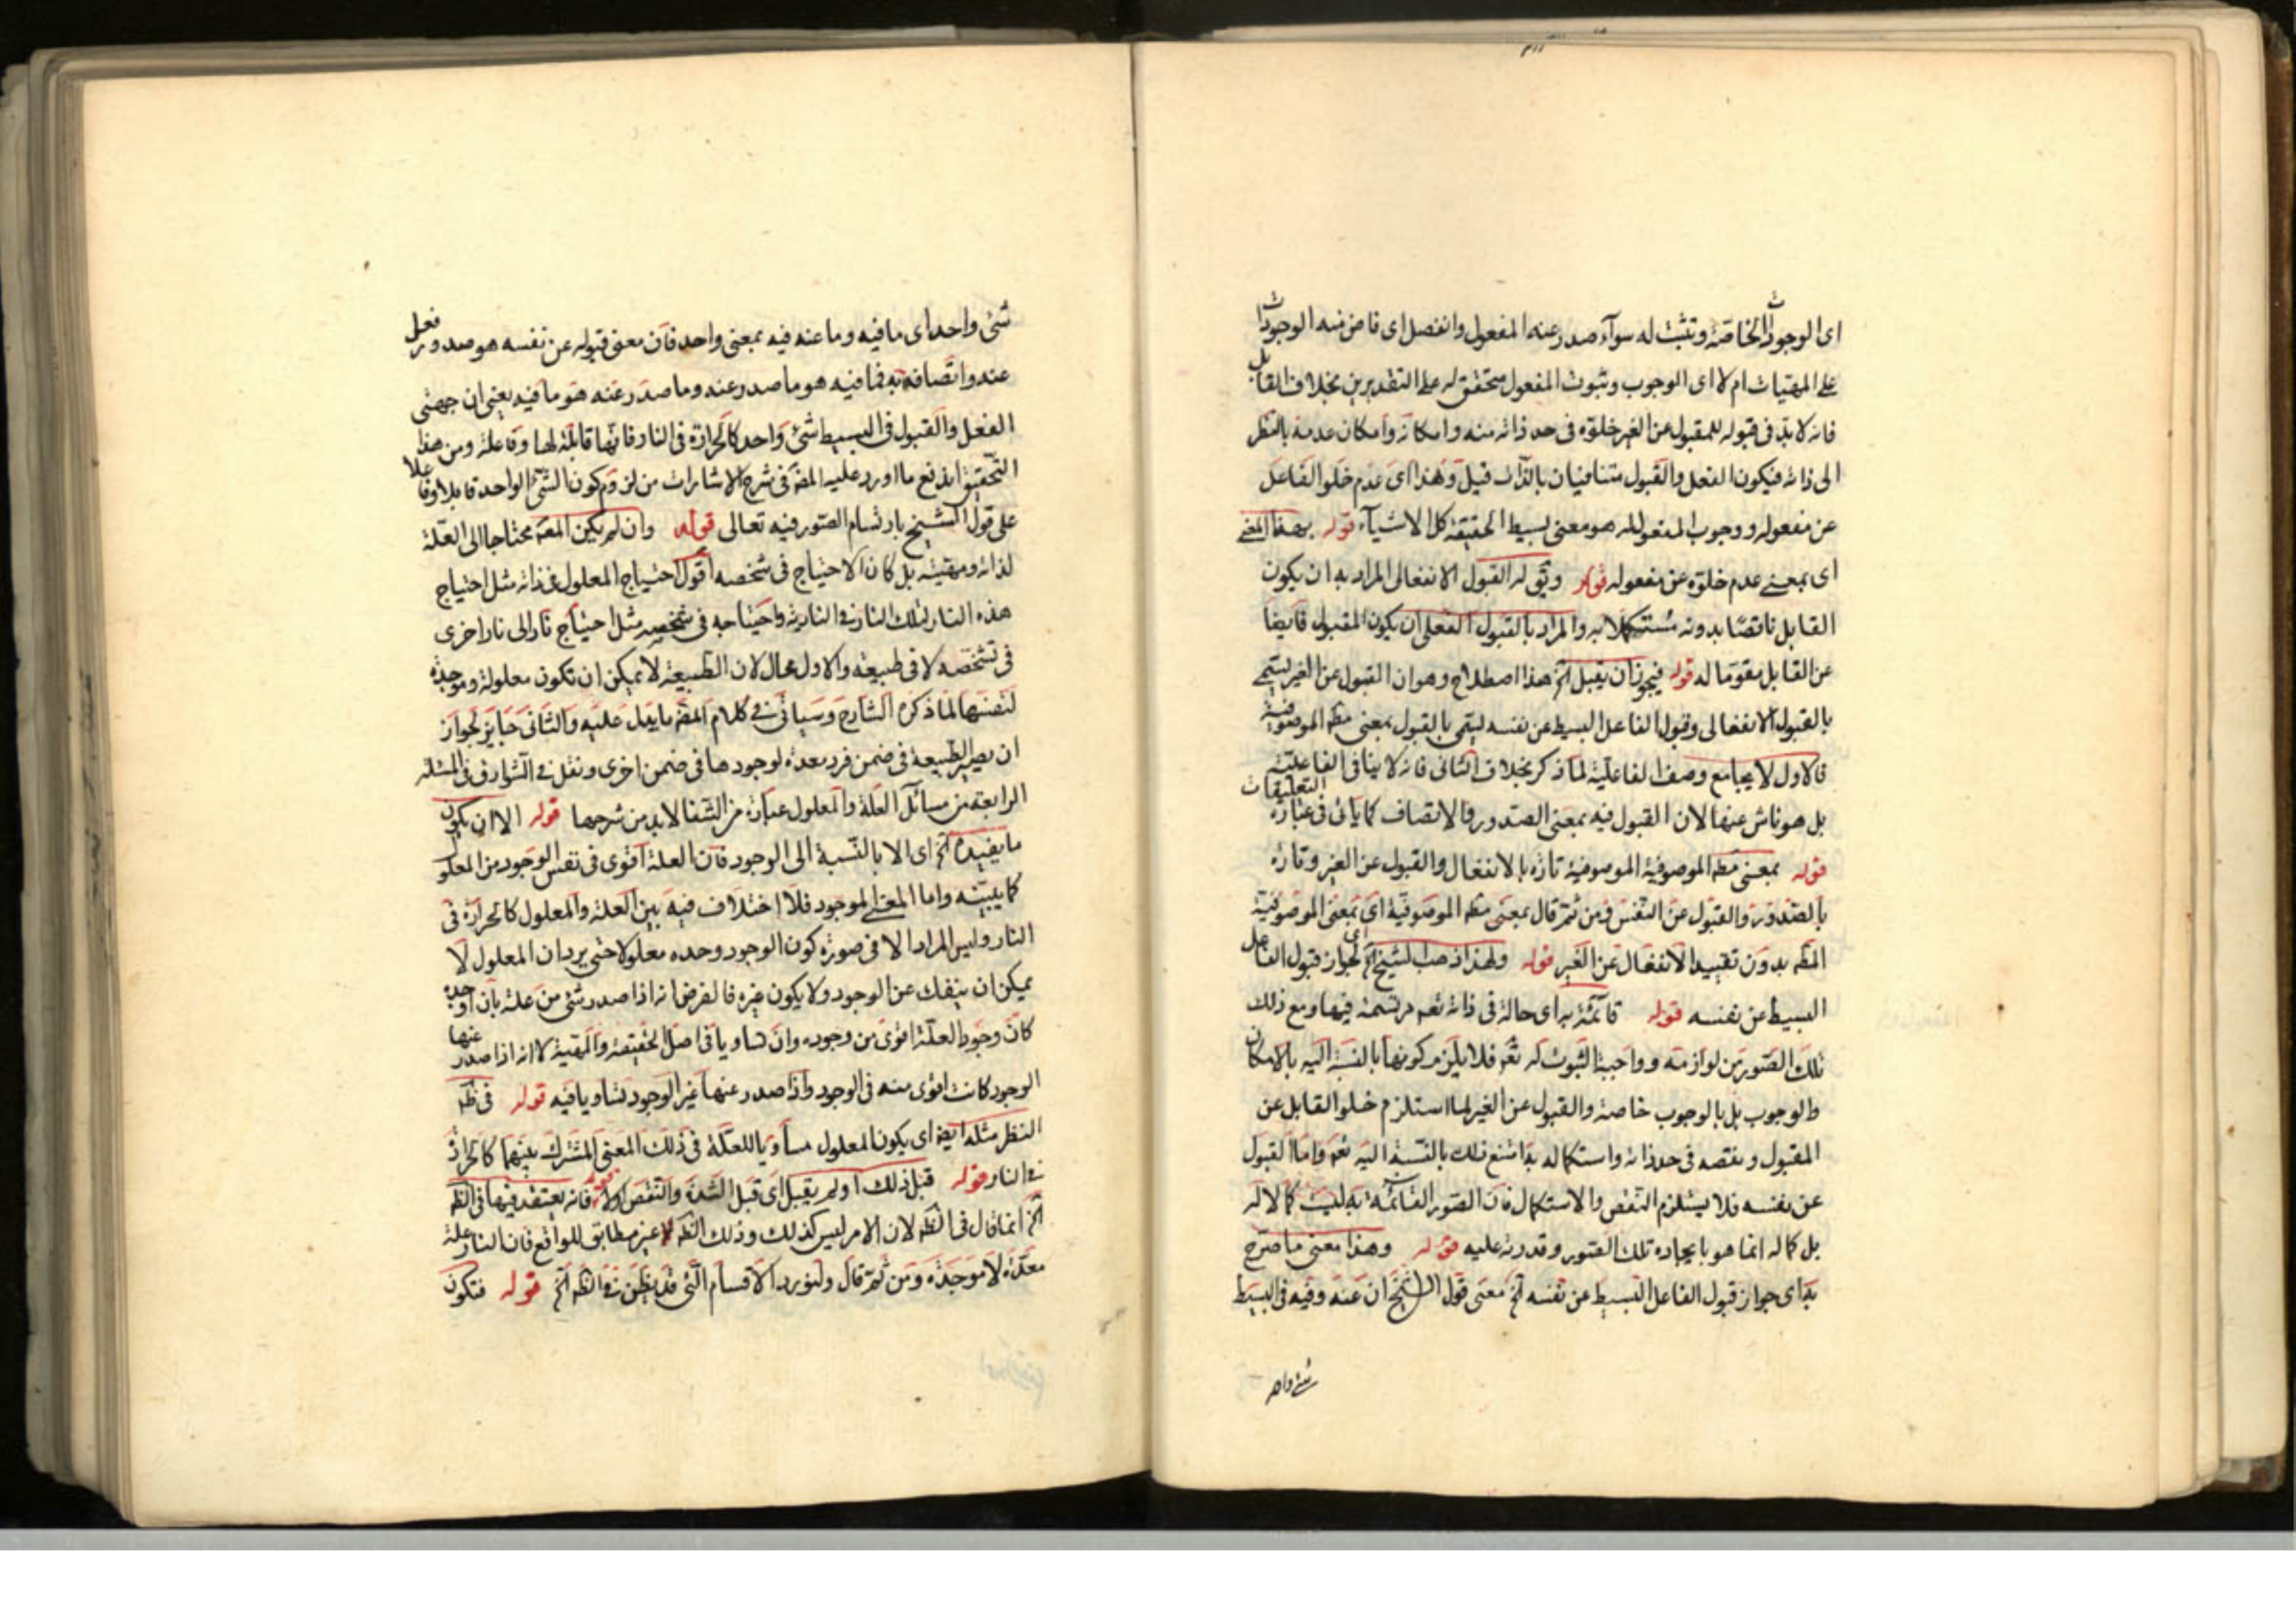 اى الوجودات الخاصة وتثبت له سوآء صدر عنه المفعول وانفصل اى فاض منه الوجودات
على المهيات ام لا اى الوجوب وثبوت المفعول متحقق له على التقديرين بخلاف القابل
فانه لا بد فى قبوله للمقبول عن الغير خلوه فى حد ذاته منه وامكانه وامكان عدمه بالنظر
الى ذاته فيكون الفعل والقبول متنافيان بالذات قيل وهذا اى عدم خلو الفاعل
عن مفعوله ووجوب المفعول له هو معنى بسيط الحقيقة كل الاشيآء قوله بهذا المعنى
اى بمعنى عدم خلوه عن مفعوله قوله وبق له القبول الانفعالى المراد به ان يكون
القابل ناقصا بدونه مستكملا به والمراد بالقبول الفعلى ان يكون المقبول فايضا
عن القابل مقوما له قوله فيجوز ان يقبل آلخ هذا اصطلاح وهو ان القبول عن الغير يسمى
بالقبول الانفعالى وقبول الفاعل البسيط عن نفسه يسمى بالقبول بمعنى مطه الموصوفية
فالاول لا يجامع وصف الفاعلية لما ذكر بخلاف الثانى فانه لا ينافى الفاعلية
بل هو ناش عنها لان القبول فيه بمعنى الصدور والاتصاف كما ياتى فى عبارة التعليقات
قوله بمعنى مطه الموصوفية الموصوفية تارة بالانفعال والقبول عن الغير وتارة
بالصدور والقبول عن النفس فمن ثم قال بمعنى مطه الموصوفية اى بمعنى الموصوفية
المطه بدون تقييد الانفعال عن الغير قوله ولهذا ذهب الشيخ آلخ اى لجواز قبول الفاعل
البسيط عن نفسه قوله قآئمة به اى حالة فى ذاته تعه مرتسمة فيها ومع ذلك
تلك الصور من لوازمه وواجبة الثبوت له تعه فلا يلزم كونها بالنسبة اليه بالامكان
والوجوب بل بالوجوب خاصة والقبول عن الغير لما استلزم خلو القابل عن
المقبول ونقصه فى حد ذاته واستكماله به امتنع ذلك بالنسبة اليه تعه واما القبول
عن نفسه فلا يستلزم النقص والاستكمال فان الصور القائمة به ليست كمالا له
بل كماله انما هو بايجاده تلك الصور وقدرته عليه قوله وهذا معنى ما صرح
به اى جواز قبول الفاعل البسيط عن نفسه آلخ معنى قول الشيخ ان عنه وفيه فى البسيط
شئ واحد
شئ واحد اى ما فيه وما عنه فيه بمعنى واحد فان معنى قبوله عن نفسه هو صدور فعل
عنه واتصافه به فما فيه هو ما صدر عنه وما صدر عنه هو ما فيه يعنى ان جهتى
الفعل والقبول فى البسيط شئ واحد كالحرارة فى النار فانها قابلة لها وفاعلة ومن هذا
التحقيق اندفع ما اورد عليه المصه فى شرح الاشارات من لزوم كون الشئ الواحد قابلا وفاعلا
على قول الشيخ بارتسام الصور فيه تعالى قوله وان لم يكن المعه محتاجا الى العلة
لذاته ومهيته بل كان الاحتياج فى شخصه اقول احتياج المعلول فى ذاته مثل احتياج
هذه النار لتلك النار فى النارية واحتياجه فى شخصه مثل احتياج نار الى نار اخرى
فى تشخصه لا فى طبيعته والاول محال لان الطبيعة لا يمكن ان تكون معلولة وموجدة
لنفسها لما ذكره الشارح وسياتى فى كلام المصه ما يدل عليه والثانى جايز لجواز
ان يصير الطبيعة فى ضمن فرد معدة لوجودها فى ضمن اخرى ونقل فى الشوارق فى المسئلة
الرابعة من مسائل العلة والمعلول عبارة من الشفا لا بد من شرحها قوله الا ان يكون
ما يفيده آلخ اى الا بالنسبة الى الوجود فان العلة اقوى فى نفس الوجود من المعلو
كما يبينه واما المعنى الموجود فلا اختلاف فيه بين العلة والمعلول كالحرارة فى
النار وليس المراد الا فى صورة كون الوجود وحده معلولا حتى يرد ان المعلول لا
يمكن ان ينفك عن الوجود ولا يكون غيره فالفرض انه اذا صدر شئ من علة بان اوجده
كان وجود العلة اقوى من وجوده وان تساويا فى اصل الحقيقة والمهية لا انه اذا صدر عنها
الوجود كانت اقوى منه فى الوجود واذا صدر عنها غير الوجود تساويا فيه قوله فى ظه
النظر مثله ايضه اى يكون المعلول مساويا للعلة فى ذلك المعنى المشترك بينهما كالحرارة
فى النار قوله قبل ذلك او لم يقبل اى قبل الشدة والنقص اولا قوله فانه يعتقد فيها فى الظه
آلخ انما قال فى الظه لان الامر ليس كذلك وذلك الظه غير مطابق للواقع فان النار علة
معدة لا موجدة ومن ثم قال ولنورد الاقسام التى قد يظن فى الظه آلخ قوله فتكون